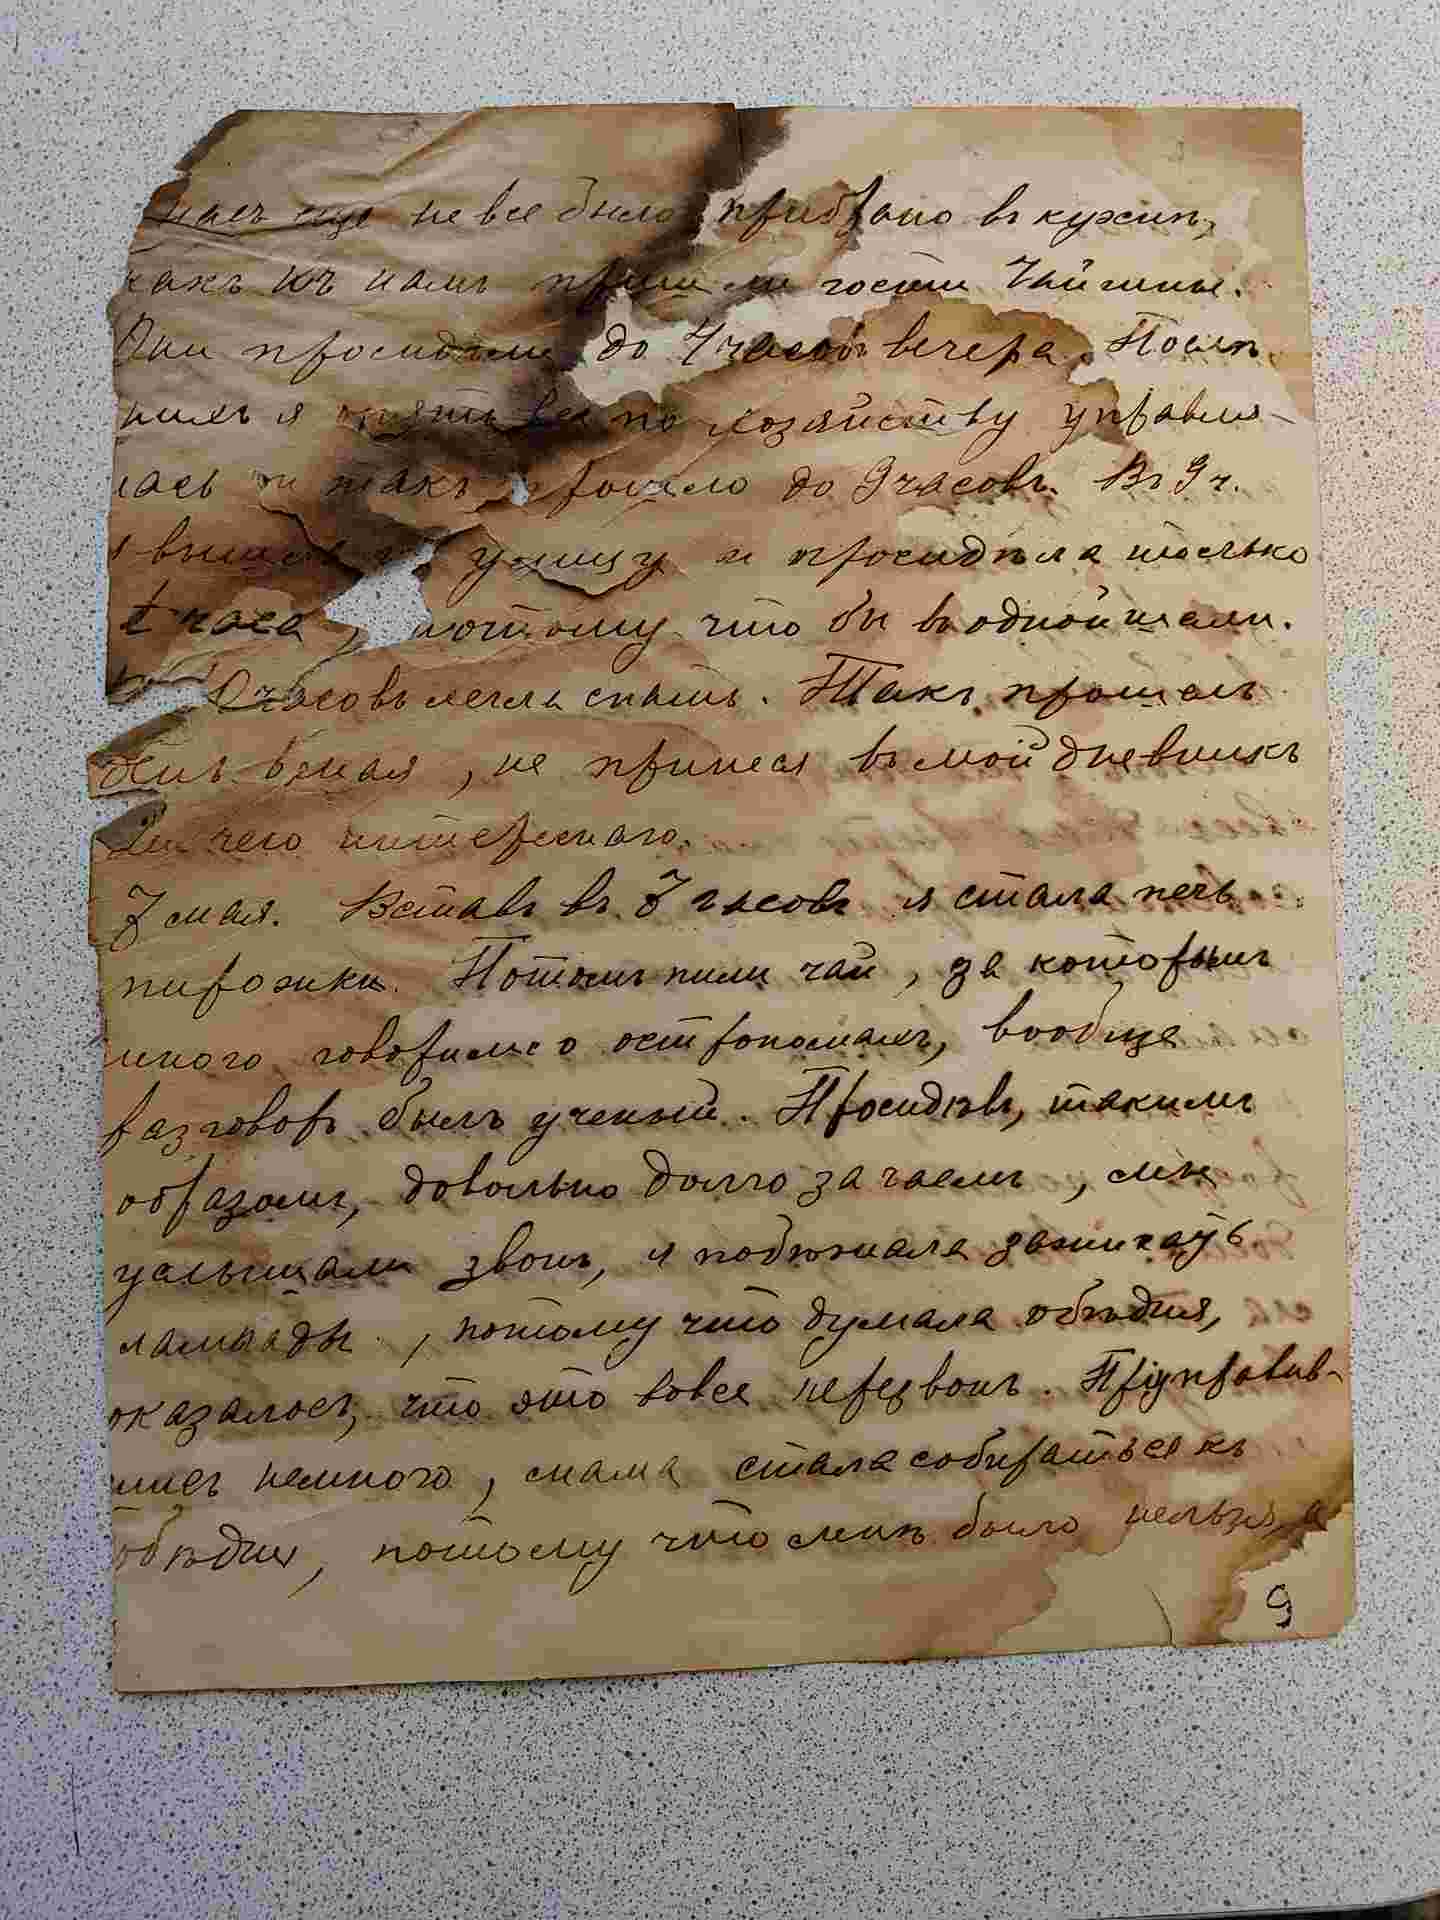 насъ еще не все было прибрано въ кухнѣ,
какъ къ намъ пришли гости Чайшны.
Они просидѣли до 4 часовъ вечера. Послѣ
нихъ я опять все по хозяйству управля-
лась и такъ прошло до 9 часовъ. Въ 9 ч.
я вышла на улицу и просидѣла только
часа, потому что бы въ одной шали.
часовъ легла спать. Такъ прошелъ
день 6 мая, не принеся въ мой дневникъ
Ни чего интереснаго.
7 мая. Вставъ въ 7 часовъ я стала печь
пирожки. Потомъ пили чай, за которымъ
много говорили о астрономахъ, вообще
разговоръ былъ ученый. Просидѣвъ, такимъ
образомъ, довольно долго за чаемъ, мы
услышали звонъ, я побѣжала зажигать
лампады, потому что думала обѣдня,
оказалось, что это вовсе перезвонъ. Приуправив-
шись немного, мама стала собираться къ
обѣдни, потому что мнѣ было нельзя, а
9